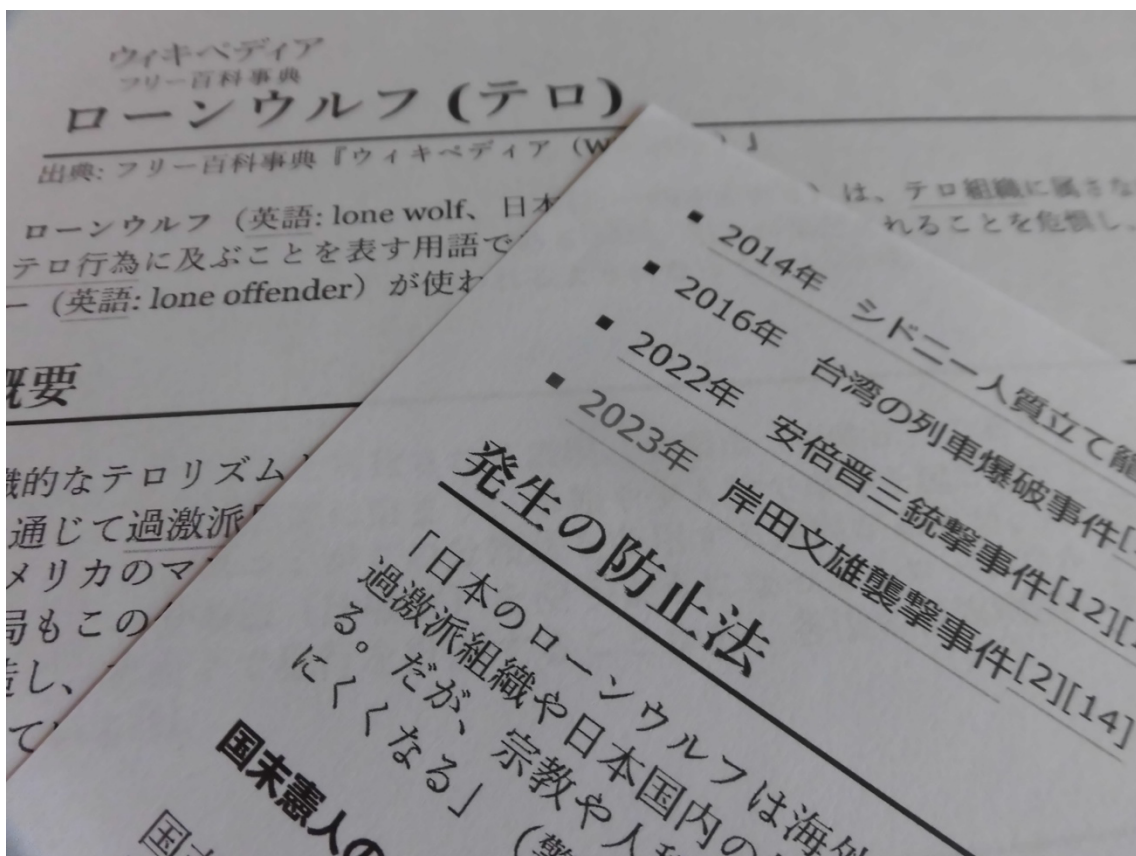 ウィキペディア
フリー百科事典
ローンウルフ (テロ)
出典: フリー百科事典『ウィキペディア (W
ローンウルフ (英語: lone wolf、日本
は、テロ組織に属さな
テロ行為に及ぶことを表す用語で
れることを危惧し、
ー (英語: lone offender) が使わ
概要
織的なテロリズム
通じて過激派
メリカのマ
局もこの
造し、
て
■ 2014年 シドニー人質立て籠
■ 2016年 台湾の列車爆破事件[
■ 2022年 安倍晋三銃撃事件[12][
■ 2023年 岸田文雄襲撃事件[2][14]
発生の防止法
「日本のローンウルフは海外
過激派組織や日本国内の
る。だが、宗教や人種
にくくなる」 (警
国末憲人の
国末